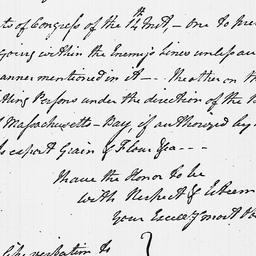 ts of Congress of the 14th Inst, – One to pre
going within the Enemy's Lines unless au
anner mentioned in it – . The other on
tting Persons under the direction of the
Massachusetts-Bay, if authorized by
to export Grain & Flour &a - - -
I have the Honor to be
with Respect & Esteem
Your Excellys most
like verbatim to